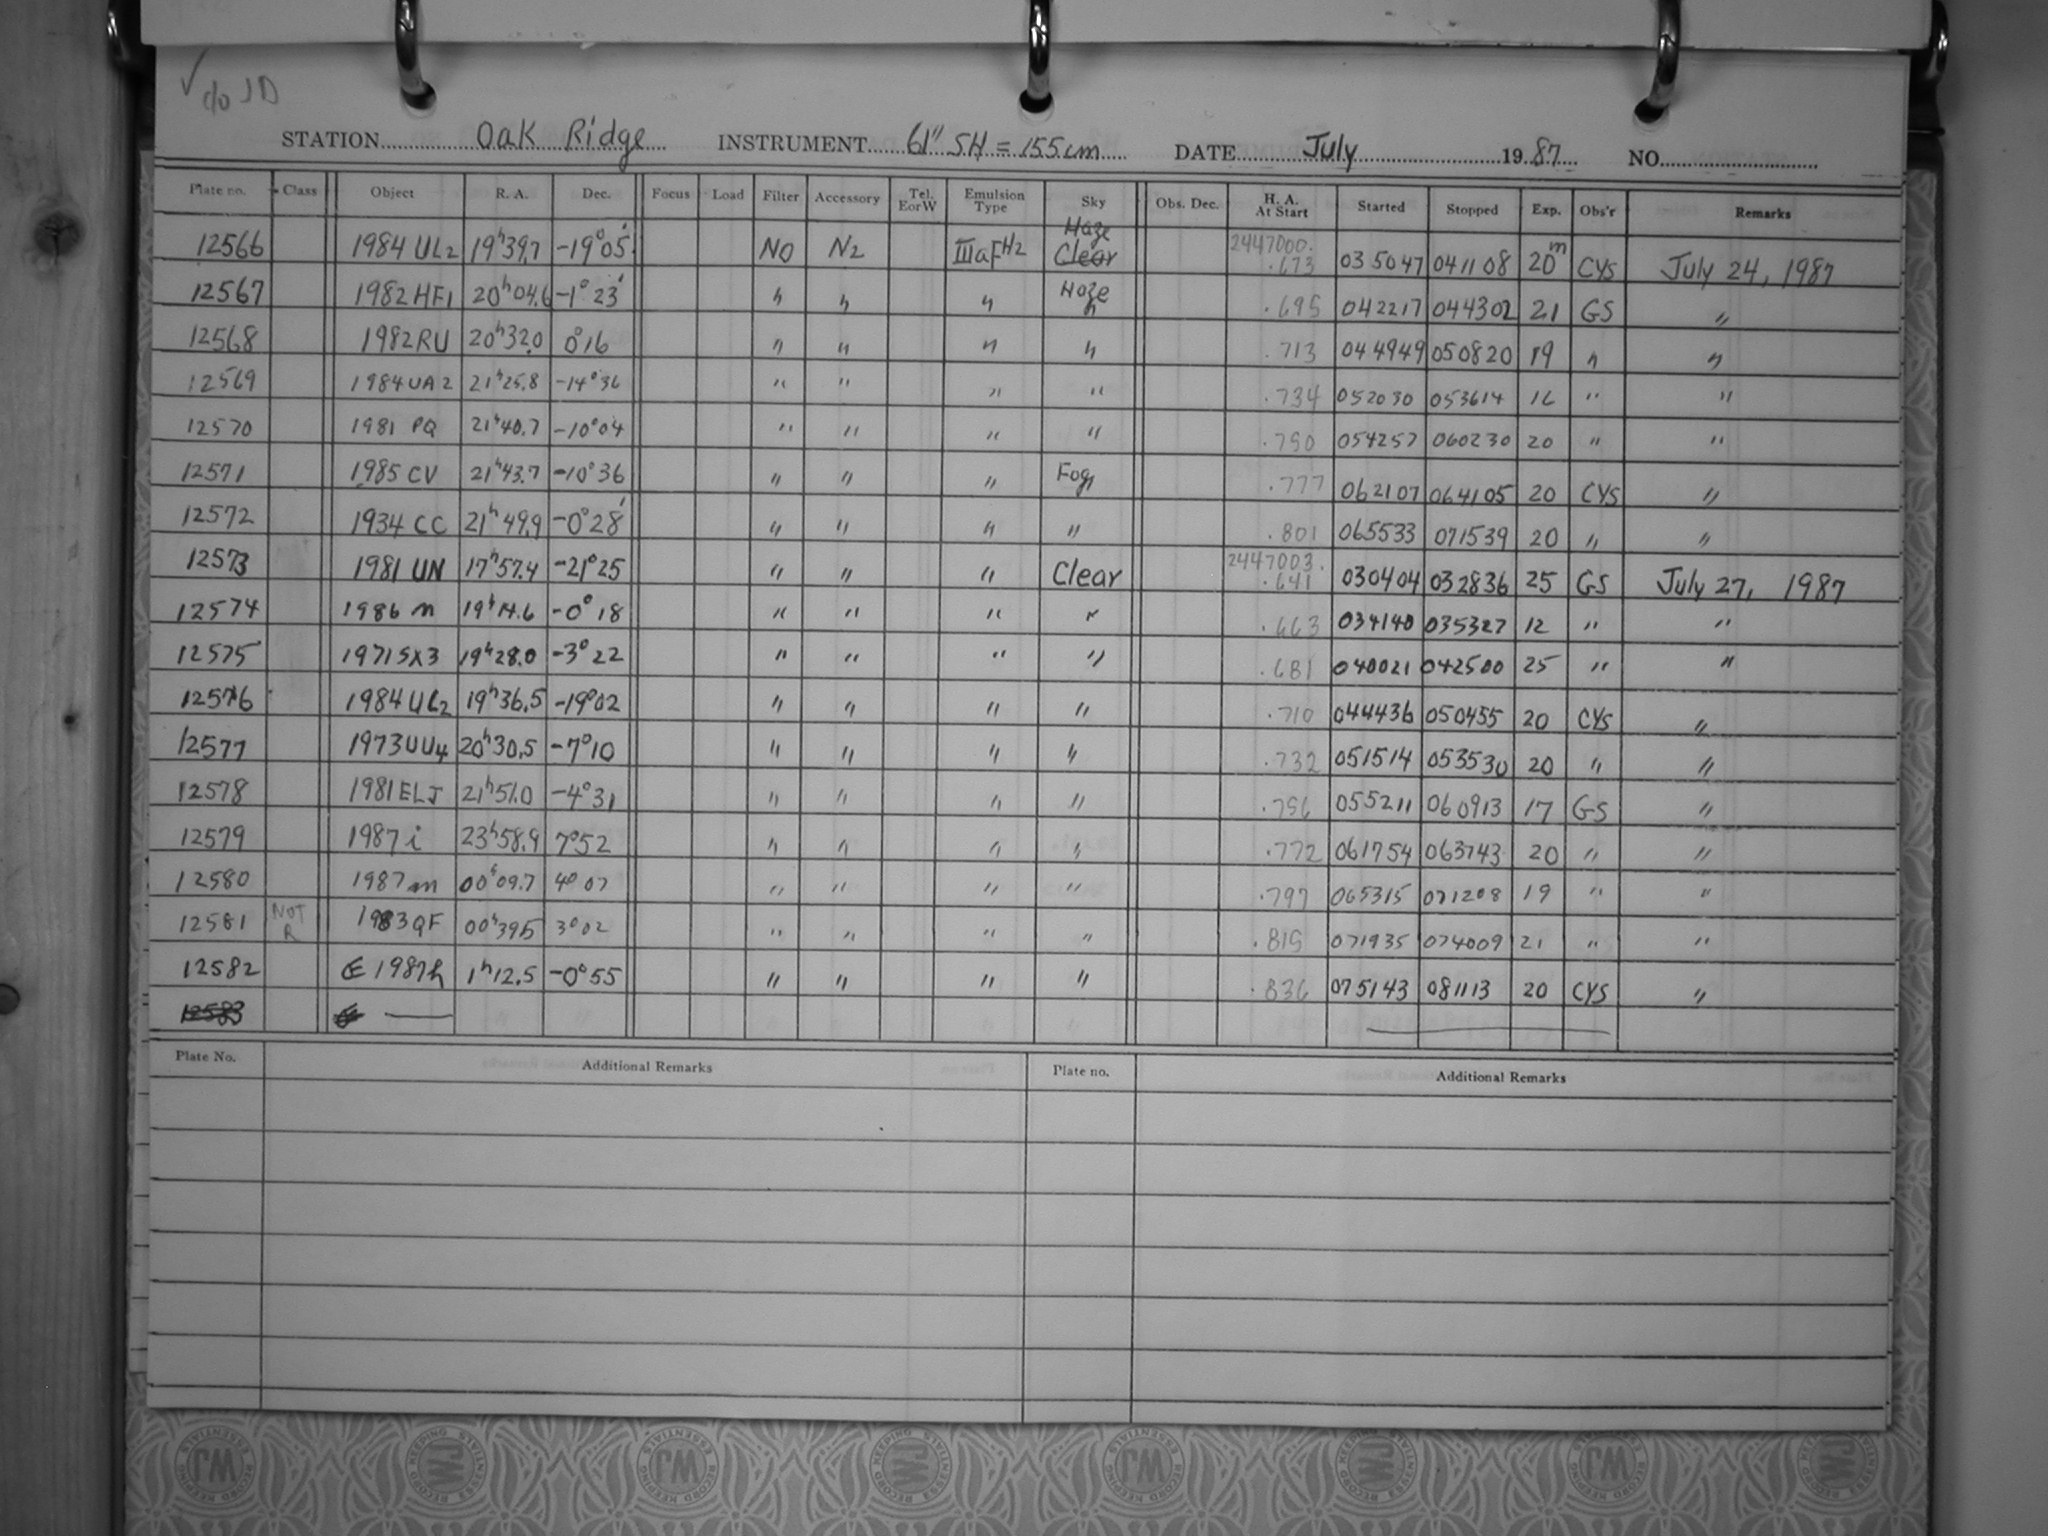 ✓ do JD
STATION Oak Ridge INSTRUMENT 61" SH = 155 cm DATE July 1987 NO
Plate no. Class Object R. A. Dec. Focus Load Filter Accessory Tel. EorW Emulsion Type Sky Obs. Dec. H. A. At Start Started Stopped Exp. Obs'r Remarks
12566 1984 UL2 19h39.7 -19°05' NO N2 IIIaF H2 Haze Clear 2447000. .673 035047 041108 20m CYS July 24, 1987
12567 1982 HF1 20h04.6 -1°23' " " " Haze " .695 042217 044302 21 GS "
12568 1982 RU 20h32.0 0°16 " " " " .713 044949 050820 19 " "
12569 1984 UA2 21h25.8 -14°36 " " " " .734 052030 053614 16 " "
12570 1981 PQ 21h40.7 -10°04 " " " " .750 054257 060230 20 " "
12571 1985 CV 21h43.7 -10°36 " " " Fog .777 062107 064105 20 CYS "
12572 1934 CC 21h49.9 -0°28' " " " " .801 065533 071539 20 " "
12573 1981 UN 17h57.4 -21°25 " " " Clear 2447003. .641 030404 032836 25 GS July 27, 1987
12574 1986 m 19h14.6 -0°18 " " " " .663 034140 035327 12 " "
12575 1971 SX3 19h28.0 -3°22 " " " " .681 040021 042500 25 " "
12576 1984 UL2 19h36.5 -19°02 " " " " .710 044436 050455 20 CYS "
12577 1973 UU4 20h30.5 -7°10 " " " " .732 051514 053530 20 " "
12578 1981 ELJ 21h51.0 -4°31 " " " " .756 055211 060913 17 GS "
12579 1987 i 23h58.9 7°52 " " " " .772 061754 063743 20 " "
12580 1987 m 00h09.7 4°07 " " " " .797 065315 071208 19 " "
12581 NOT R 1983 QF 00h39.5 3°02 " " " " .815 071935 074009 21 " "
12582 1987h 1h12.5 -0°55 " " " " .836 075143 081113 20 CYS "
12583
Plate No. Additional Remarks Plate no. Additional Remarks
JW ESSENTIALS RECORD KEEPING